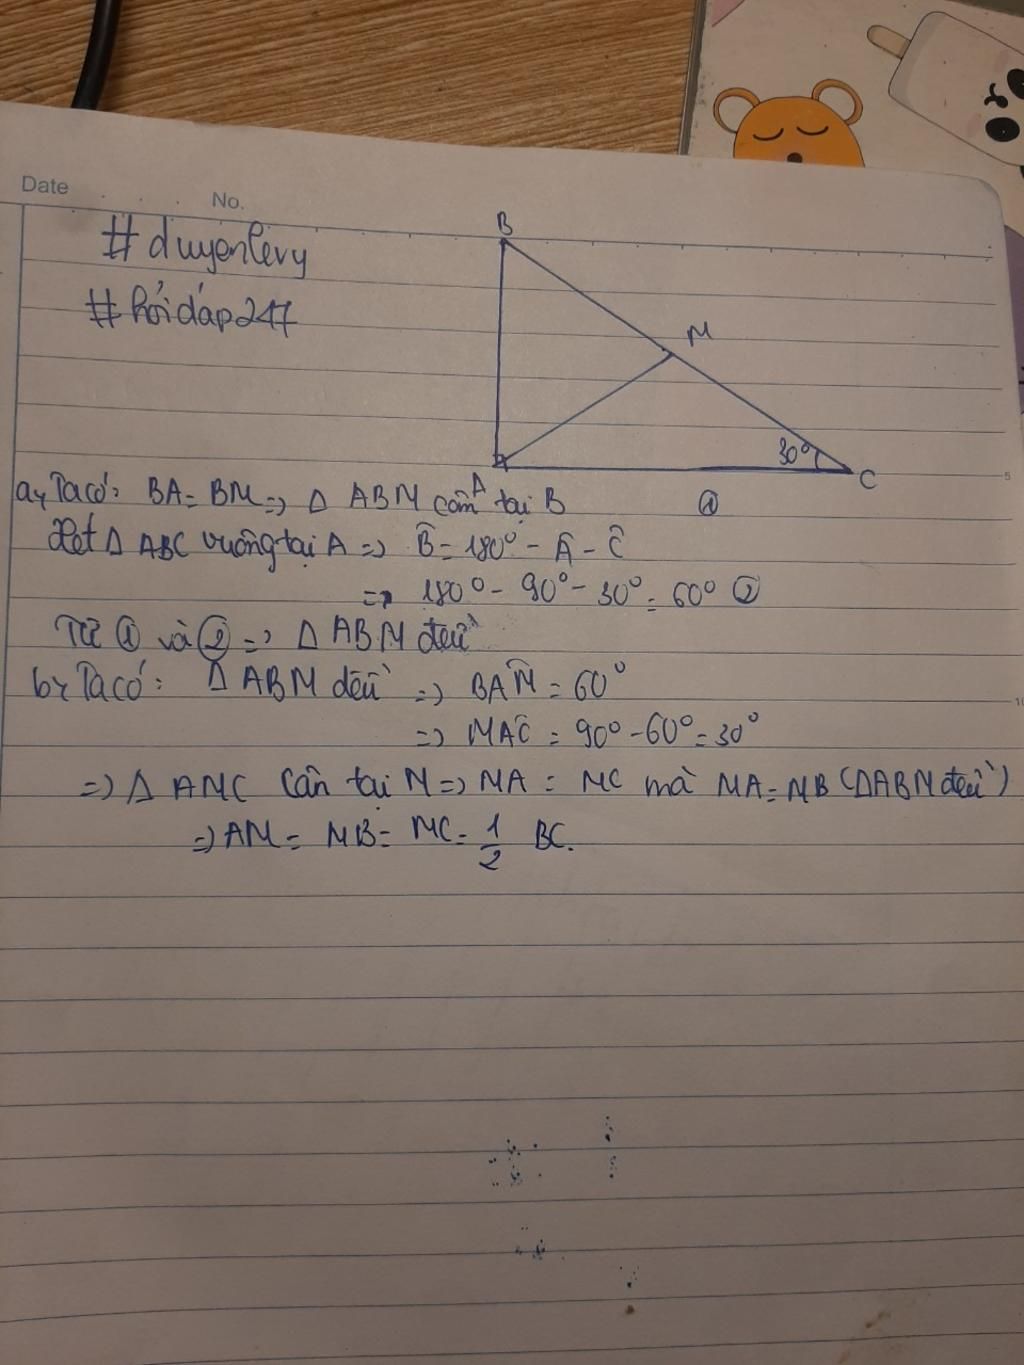 Date No.
#duyenlevy
#hỏi đáp247
B
M
30°
A
C
a, Ta có: BA = BM => Δ ABM cân tại B ①
Xét Δ ABC vuông tại A => B̂ = 180° - Â - Ĉ
=> 180° - 90° - 30° = 60° ②
Từ ① và ② => Δ ABM đều
b, Ta có: Δ ABM đều => BÂM = 60°
=> MÂC = 90° - 60° = 30°
=> Δ AMC cân tại M => MA = MC mà MA = MB (ΔABM đều)
=> AM = MB = MC = 1/2 BC.
5
10